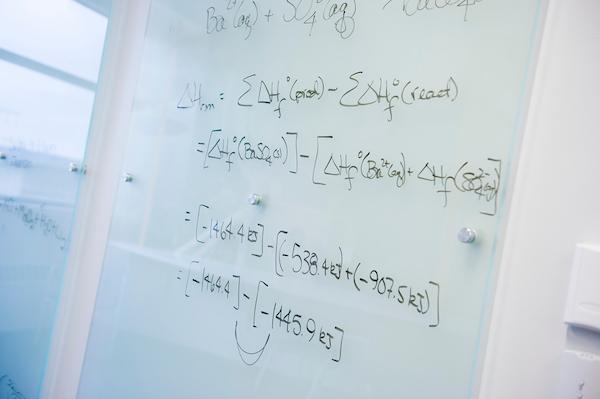 Ba²⁺(aq) + SO₄²⁻(aq)
ΔHᵣₓₙ = ΣΔH_f°(prod) - ΣΔH_f°(react)
= [ΔH_f°(BaSO₄(s))] - [ΔH_f°(Ba²⁺(aq)) + ΔH_f(SO₄²⁻(aq))]
= [-1464.4 kJ] - [(-538.4 kJ) + (-907.5 kJ)]
= [-1464.4] - [-1445.9 kJ]